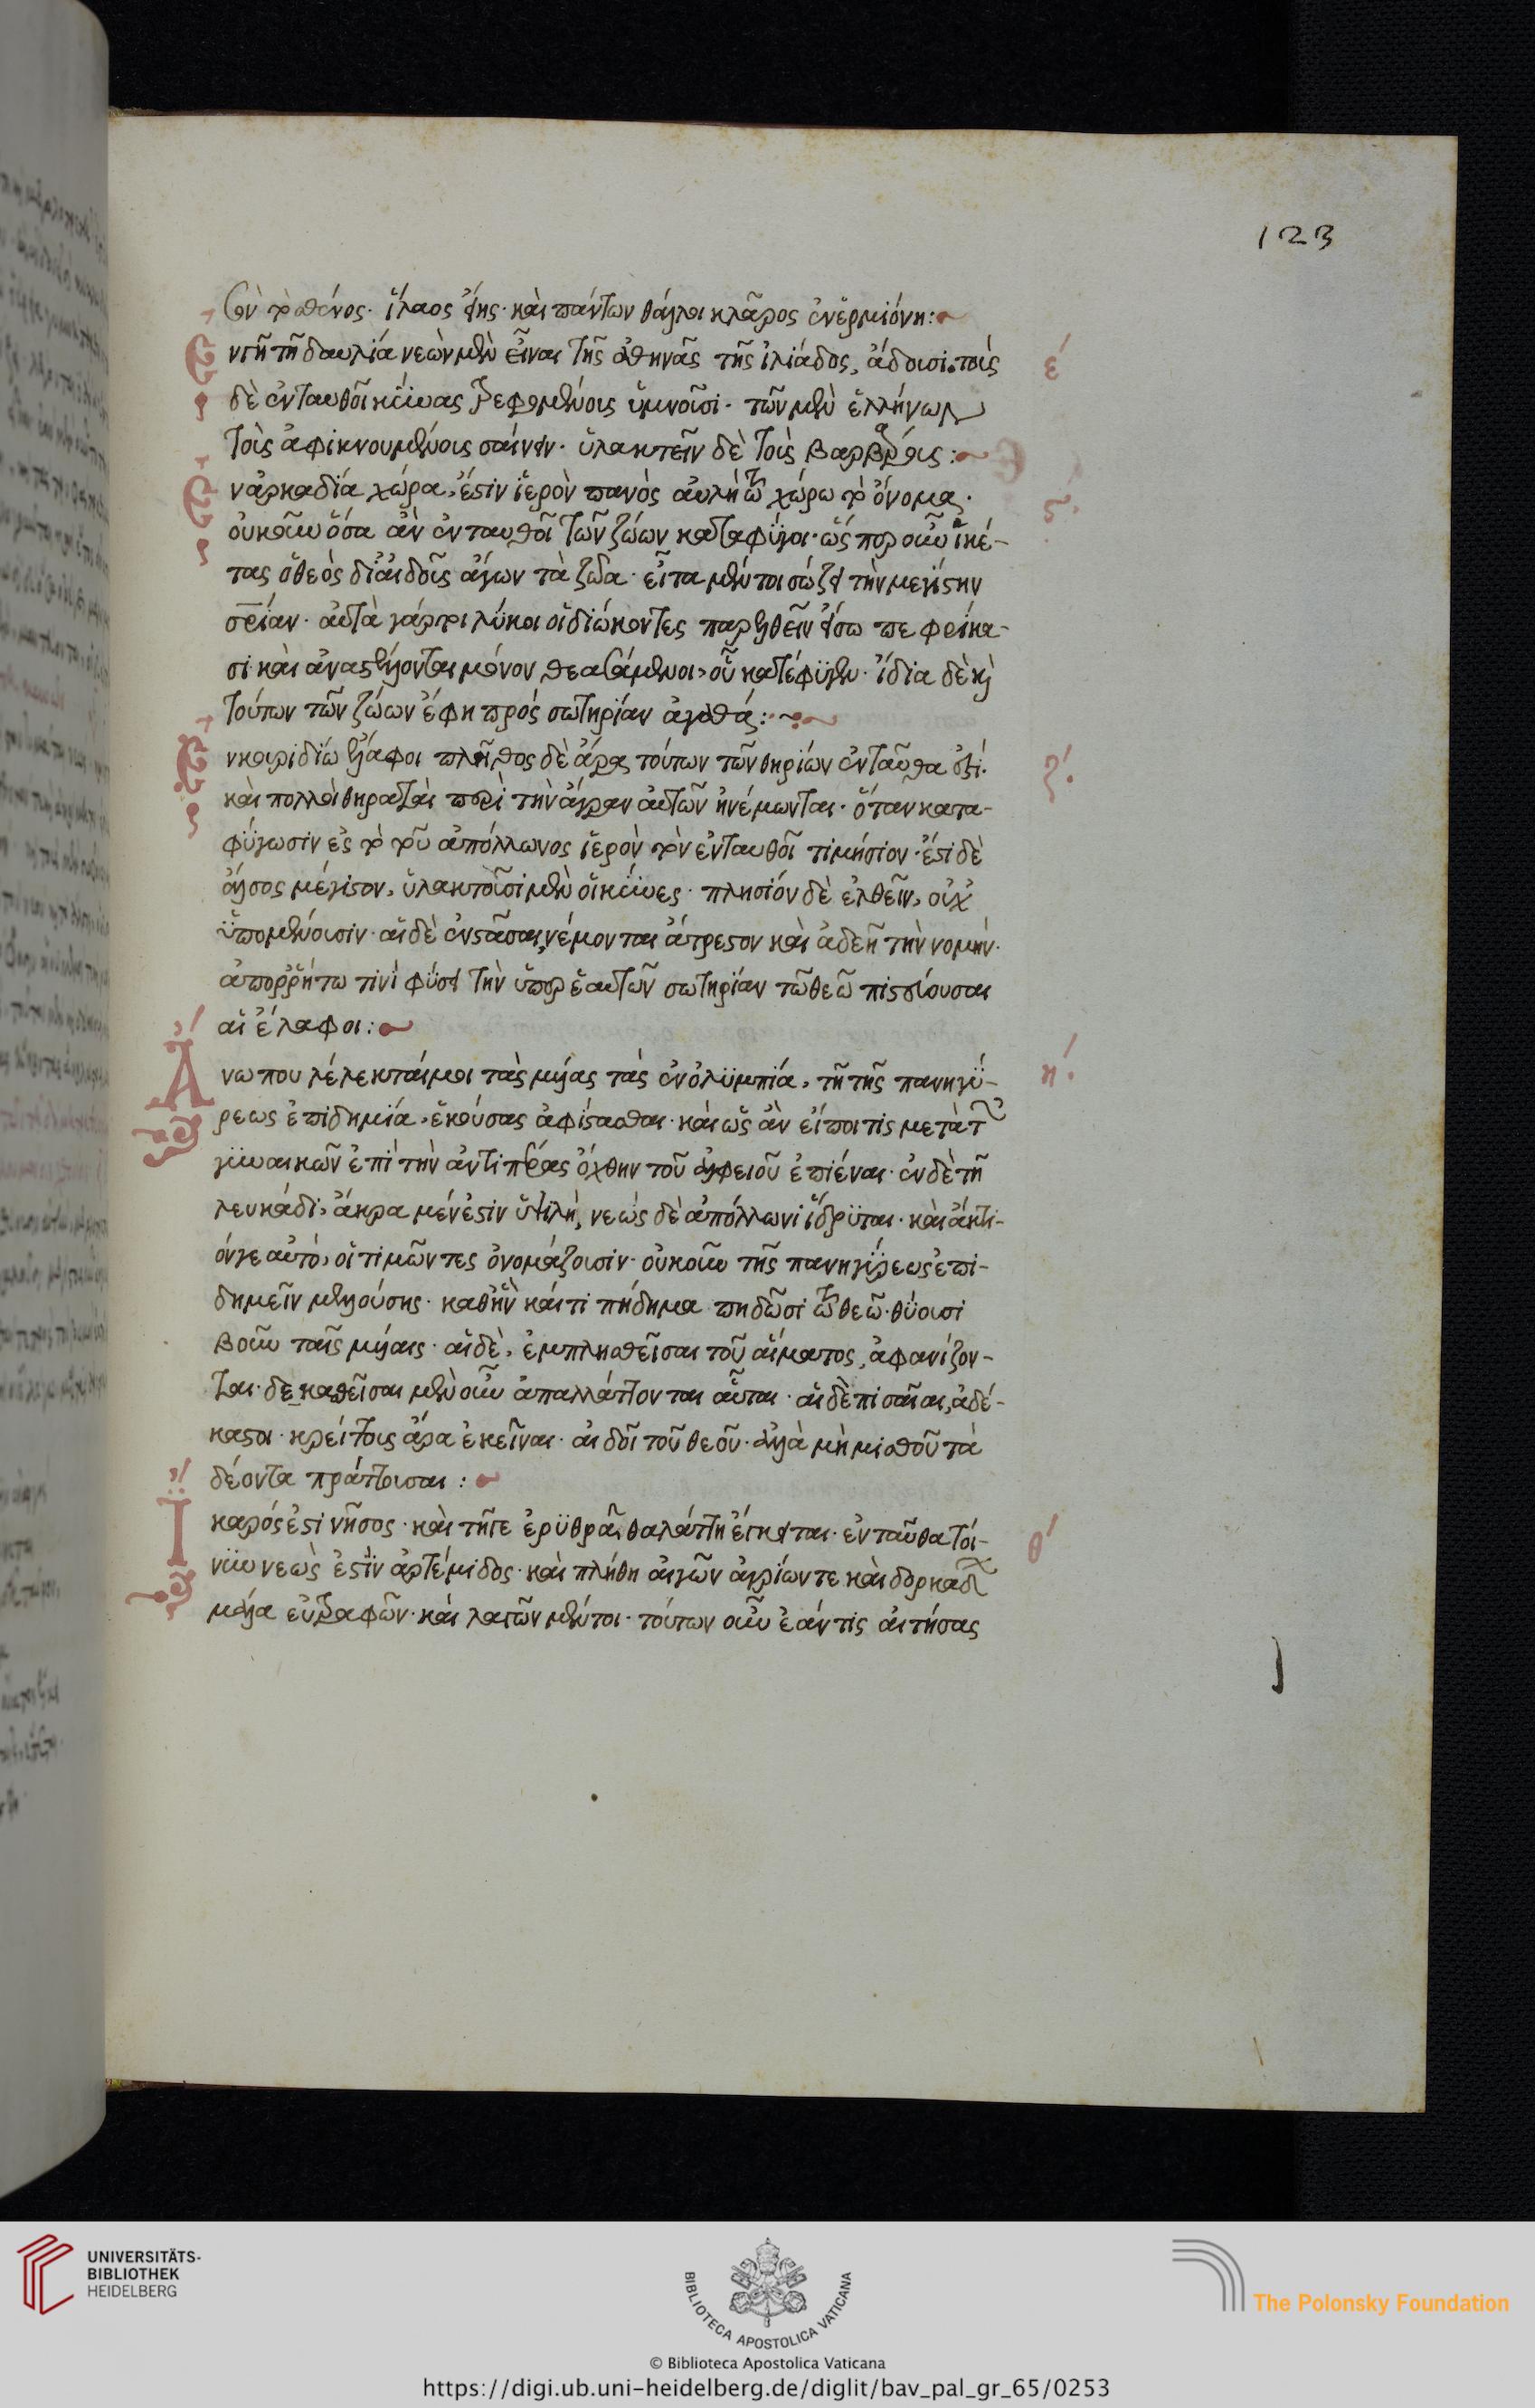 123
σὸν τὸ σθένος· ἵλαος εἴης· καὶ πάντων θάλλοι κλᾶρος ἐν ἑρμιόνη:
Ἐν γῆ τῆ δαυλία νεὼν μὲν εἶναι τῆς ἀθηνᾶς τῆς ἰλιάδος, ἄδουσι. τοὺς
ε΄
δὲ ἐνταυθοῖ κύνας τρεφομένους ὑμνοῦσι· τῶν μὲν ἑλλήνων
τοὺς ἀφικνουμένους σαίνειν· ὑλακτεῖν δὲ τοὺς βαρβάρους:
Ἐν ἀρκαδία χώρα, ἔστιν ἱερὸν πανὸς αὐλὴ τῶ χώρω τὸ ὄνομα·
ς΄
οὐκοῦν ὅσα ἂν ἐνταυθοῖ τῶν ζώων καταφύγοι· ὥσπερ οὖν ἱκέ-
τας ὁ θεὸς δι' αἰδοῦς ἄγων τὰ ζῶα· εἶτα μέντοι σώζει τὴν μεγίστην
σρίαν· αὐτὰ γάρ τοι λύκοι οἱ διώκοντες παρελθεῖν εἴσω πεφρίκα-
σι καὶ ἀναστέλλονται μόνον θεασάμενοι, οὗ κατέφυγεν· ἰδία δὲ καὶ
τούτων τῶν ζώων ἔφη πρὸς σωτηρίαν ἀγαθά:
Ἐν κουριδίω ἔλαφοι πλῆθος δὲ ἄρα τούτων τῶν θηρίων ἐνταῦθα ἐστί·
ζ΄
καὶ πολλοὶ θηραταὶ περὶ τὴν ἄγραν αὐτῶν ἠνέμωνται· ὅταν κατα-
φύγωσιν ἐς τὸ τοῦ ἀπόλλωνος ἱερὸν τὸν ἐνταυθοῖ τιμήσιον· ἔστι δὲ
ἄλσος μέγιστον, ὑλακτοῦσι μὲν οἱ κύνες· πλησίον δὲ ἐλθεῖν, οὐχ
ὑπομένουσιν· αἱ δὲ ἐνστᾶσαι, νέμονται ἄτρεστον καὶ ἀδεῆ τὴν νομήν·
ἀπορρήτω τινὶ φύσει τὴν ὑπὲρ ἑαυτῶν σωτηρίαν τῶ θεῶ πιστεύουσαι
αἱ ἔλαφοι:
Ἄνω που λέλεκταί μοι τὰς μυίας τὰς ἐν ὀλυμπία, τῆ τῆς πανηγύ-
η΄
ρεως ἐπιδημία, ἑκούσας ἀφίστασθαι· καὶ ὡς ἂν εἴποι τις μετὰ τῶν
γυναικῶν ἐπὶ τὴν ἀντιπέρας ὄχθην τοῦ ἀλφειοῦ ἐπιέναι· ἐν δὲ τῆ
λευκάδι, ἄκρα μέν ἐστιν ὑψηλὴ, νεὼς δὲ ἀπόλλωνι ἵδρυται· καὶ ἄκτι-
όν γε αὐτὸ, οἱ τιμῶντες ὀνομάζουσιν· οὐκοῦν τῆς πανηγύρεως ἐπι-
δημεῖν μελλούσης· καθ' ἣν καί τι πήδημα πηδῶσι τῶ θεῶ· θύουσι
βοῦν ταῖς μυίαις· αἱ δὲ, ἐμπλησθεῖσαι τοῦ αἵματος, ἀφανίζον-
ται· δεκασθεῖσαι μὲν οὖν ἀπαλλάττονται αὗται· αἱ δὲ πισαῖαι, ἀδέ-
καστοι· κρείττους ἄρα ἐκεῖναι· αἰδοῖ τοῦ θεοῦ· ἀλλὰ μὴ μισθοῦ τὰ
δέοντα πράττουσαι:
Ἴκαρός ἐστι νῆσος· καὶ τῆ γε ἐρυθρᾶ θαλάττη ἔγκειται· ἐνταῦθα τοί-
θ΄
νυν νεὼς ἐστὶν ἀρτέμιδος· καὶ πλήθη αἰγῶν ἀγρίων τε καὶ δορκάδων
μάλα εὐτραφῶν· καὶ λαγῶν μέντοι· τούτων οὖν ἐάν τις αἰτήσας
UNIVERSITÄTS-
BIBLIOTHEK
HEIDELBERG
BIBLIOTECA APOSTOLICA VATICANA
The Polonsky Foundation
© Biblioteca Apostolica Vaticana
https://digi.ub.uni-heidelberg.de/diglit/bav_pal_gr_65/0253